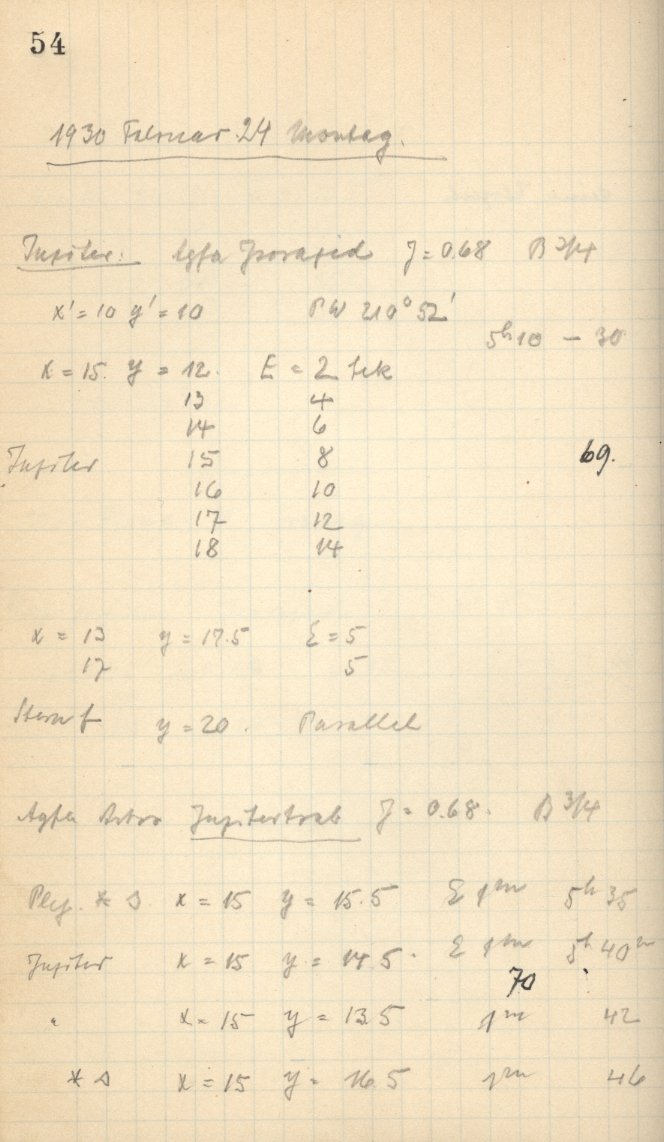 54
1930 Februar 24 Montag.
Jupiter: Agfa J = 0.68 B 3/4
x' = 10 y' = 10 PW 210° 52'
5h 10 – 30
x = 15. y = 12. E = 2 sek
13 4
14 6
Jupiter 15 8 69.
16 10
17 12
18 14
x = 13 y = 17.5 E = 5
17 5
Stern f y = 20. Parallel
Agfa Astro Jupitertrab J = 0.68. B 3/4
x = 15 y = 15.5 E 1m 5h 35
Jupiter x = 15 y = 14.5. E 1m 5h 40m
70
" x = 15 y = 13.5 1m 42
x = 15 y = 16.5 1m 46